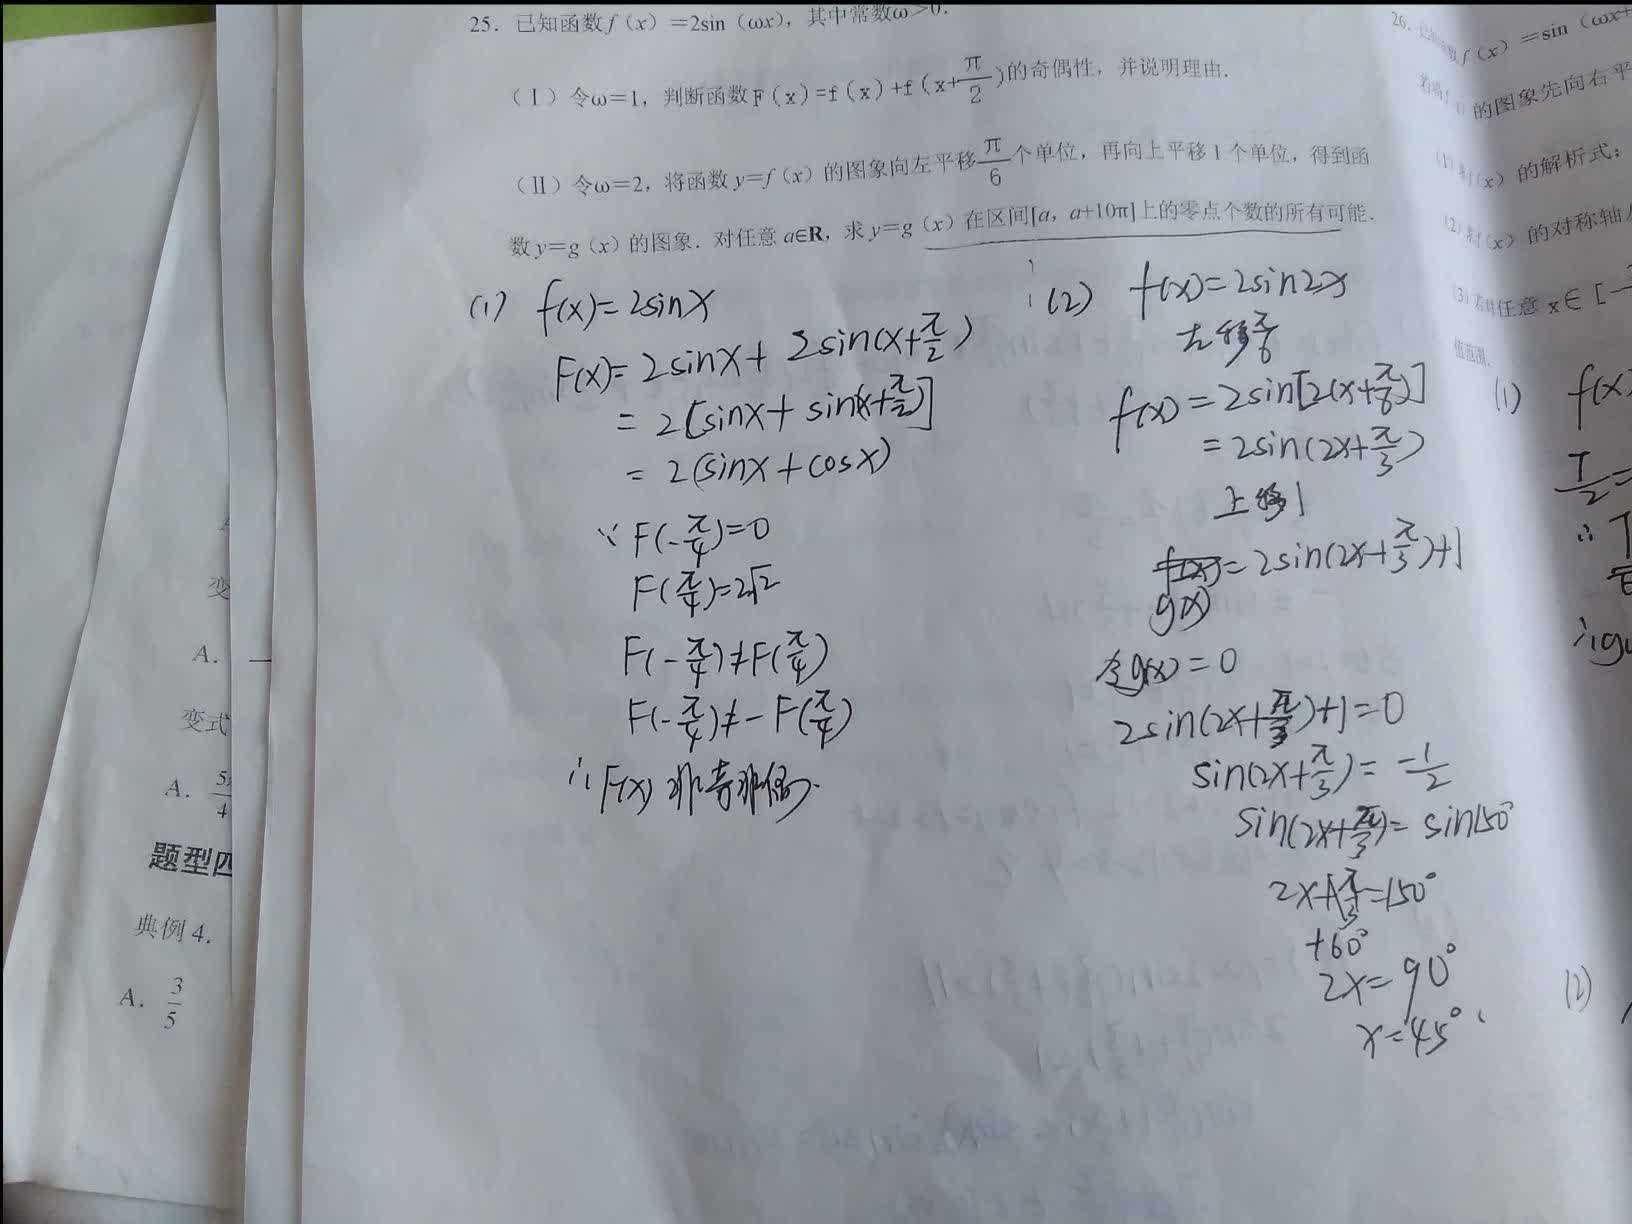 25. 已知函数f（x）=2sin（ωx），其中常数ω>0.
（Ⅰ）令ω=1，判断函数F（x）=f（x）+f（x+π/2）的奇偶性，并说明理由.
（Ⅱ）令ω=2，将函数y=f（x）的图象向左平移π/6个单位，再向上平移1个单位，得到函
数y=g（x）的图象. 对任意a∈R，求y=g（x）在区间[a，a+10π]上的零点个数的所有可能.
(1) f(x)=2sinx
F(x)=2sinx+2sin(x+π/2)
=2[sinx+sin(x+π/2)]
=2(sinx+cosx)
∵F(-π/4)=0
F(π/4)=2√2
F(-π/4)≠F(π/4)
F(-π/4)≠-F(π/4)
∴F(x)非奇非偶.
(2) f(x)=2sin2x
左移π/6
f(x)=2sin[2(x+π/6)]
=2sin(2x+π/3)
上移1
f(x)=2sin(2x+π/3)+1
g(x)
令g(x)=0
2sin(2x+π/3)+1=0
sin(2x+π/3)=-1/2
sin(2x+π/3)=sin150°
2x+π/3=150°
+60°
2x=90°
x=45°
26.
f（x）=sin（ωx+
的图象先向右平
(1) 求f(x）的解析式；
(2) 求f(x）的对称轴
(3) 若对任意 x∈[-
值范围.
(1) f(x)
T/2=
∴T
∴g
(2)
变
A.
变式
A. 5/4
题型四
典例4.
A. 3/5